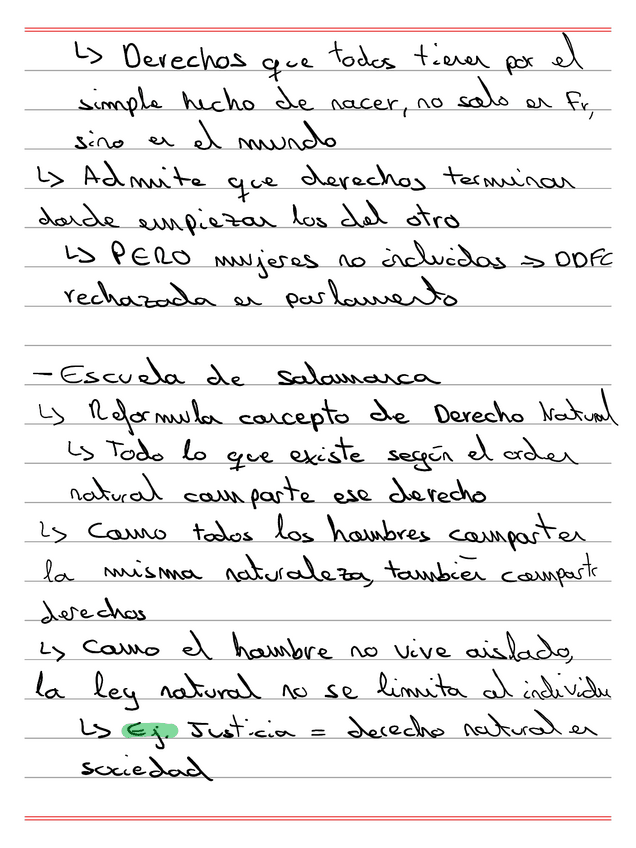 ↳ Derechos que todos tienen por el
simple hecho de nacer, no solo en Fr,
sino en el mundo
↳ Admite que derechos terminan
donde empiezan los del otro
↳ PERO mujeres no incluidas => DDFC
rechazada en parlamento
- Escuela de Salamanca
↳ Reformula concepto de Derecho Natural
↳ Todo lo que existe según el orden
natural comparte ese derecho
↳ Como todos los hombres comparten
la misma naturaleza, también compart
derechos
↳ Como el hombre no vive aislado,
la ley natural no se limita al individu
↳ Ej. Justicia = derecho natural en
sociedad